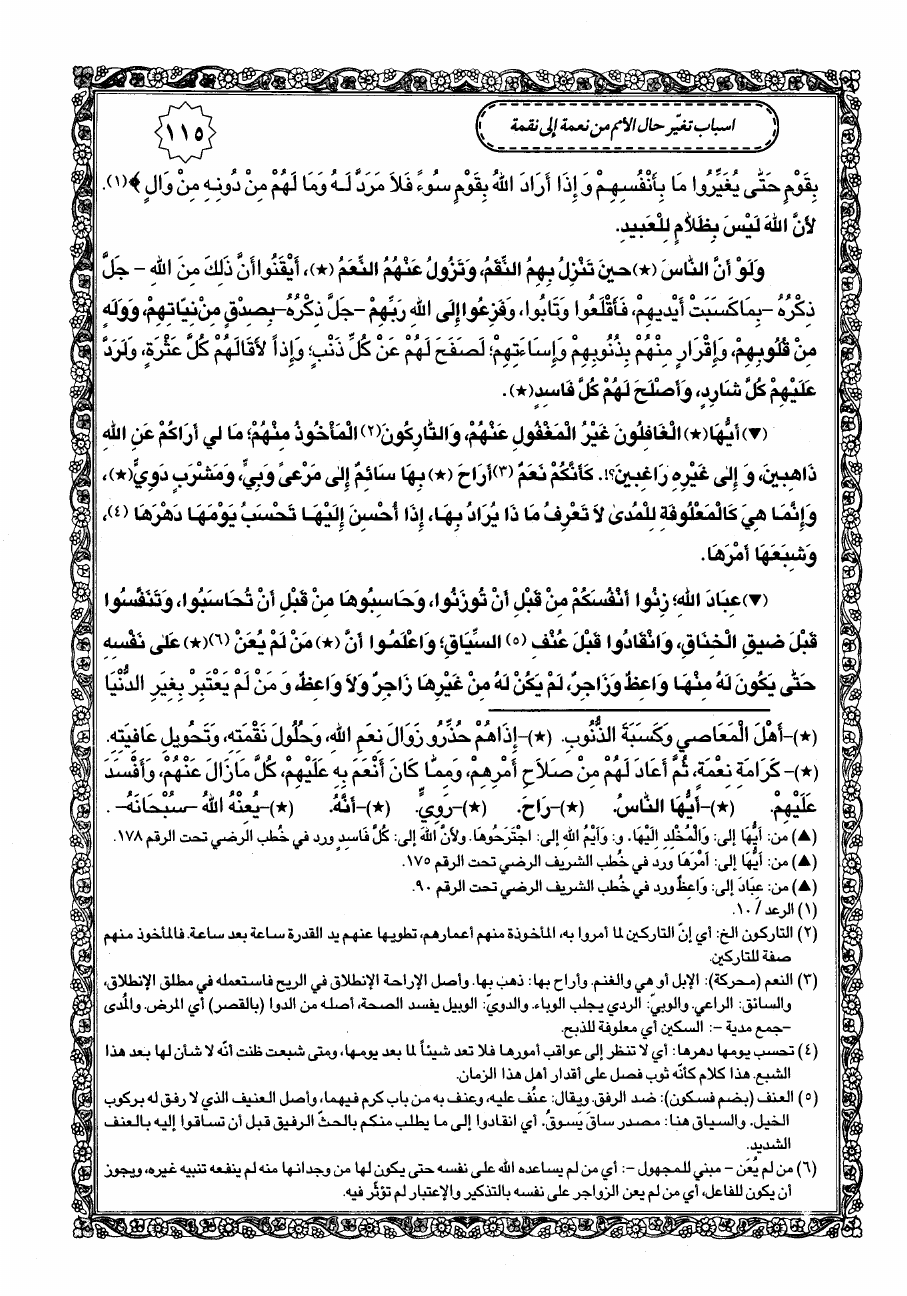 ١١٥
اسباب تغيّر حال الأمم من نعمة إلى نقمة
بِقَوْمٍ حَتّٰى يُغَيِّرُوا مَا بِأَنْفُسِهِمْ وَ إِذَا أَرَادَ اللهُ بِقَوْمٍ سُوءً فَلاَ مَرَدَّ لَـهُ وَمَا لَهُمْ مِنْ دُونِـهِ مِنْ وَالٍ ﴾(١).
لأَنَّ اللهَ لَيْسَ بِظَلاَّمٍ لِلْعَبِيدِ.
وَلَوْ أَنَّ النَّاسَ (★) حِينَ تَنْزِلُ بِهِمُ النِّقَمُ، وَتَزُولُ عَنْهُمُ النِّعَمُ (★)، أَيْقَنُوا أَنَّ ذَلِكَ مِنَ اللهِ – جَلَّ
ذِكْرُهُ –بِمَا كَسَبَتْ أَيْدِيهِمْ، فَأَقْلَعُوا وَتَابُوا، وَفَزِعُوا إِلَى اللهِ رَبِّهِمْ –جَلَّ ذِكْرُهُ–بِصِدْقٍ مِنْ نِيَّاتِهِمْ، وَوَلَهٍ
مِنْ قُلُوبِهِمْ، وَإِقْرَارٍ مِنْهُمْ بِذُنُوبِهِمْ وَإِسَاءَتِهِمْ؛ لَصَفَحَ لَهُمْ عَنْ كُلِّ ذَنْبٍ؛ وَإِذاً لأَقَالَهُمْ كُلَّ عَثْرَةٍ، وَلَرَدَّ
عَلَيْهِمْ كُلَّ شَارِدٍ، وَأَصْلَحَ لَهُمْ كُلَّ فَاسِدٍ(★).
(▼) أَيُّهَا(★) الْغَافِلُونَ غَيْرُ الْمَغْفُولِ عَنْهُمْ، وَالتَّارِكُونَ(٢) الْمَأْخُوذُ مِنْهُمْ؛ مَا لي أَرَاكُمْ عَنِ اللهِ
ذَاهِبِينَ، وَ إِلى غَيْرِهِ رَاغِبِينَ؟!. كَأَنَّكُمْ نَعَمٌ (٣) أَرَاحَ (★) بِهَا سَائِمٌ إِلى مَرْعىً وَبِيٍّ، وَمَشْرَبٍ دَوِيٍّ(★)،
وَإِنَّمَا هِيَ كَالْمَعْلُوفَةِ لِلْمُدىٰ لاَ تَعْرِفُ مَا ذَا يُرَادُ بِهَا، إِذَا أُحْسِنَ إِلَيْهَا تَحْسَبُ يَوْمَهَا دَهْرَهَا (٤)،
وَشِبَعَهَا أَمْرَهَا.
(▼) عِبَادَ اللهِ؛ زِنُوا أَنْفُسَكُمْ مِنْ قَبْلِ أَنْ تُوزَنُوا، وَحَاسِبُوهَا مِنْ قَبْلِ أَنْ تُحَاسَبُوا، وَتَنَفَّسُوا
قَبْلَ ضِيقِ الْخِنَاقِ، وَانْقَادُوا قَبْلَ عُنْفِ (٥) السِّيَاقِ؛ وَاعْلَمُوا أَنَّ (★) مَنْ لَمْ يُعَنْ (٦)(★) عَلى نَفْسِهِ
حَتّٰى يَكُونَ لَهُ مِنْهَا وَاعِظٌ وَزَاجِرٌ، لَمْ يَكُنْ لَهُ مِنْ غَيْرِهَا زَاجِرٌ وَلاَ وَاعِظٌ، وَ مَنْ لَمْ يَعْتَبِرْ بِغِيَرِ الدُّنْيَا
(★)–أَهْلَ الْمَعَاصِي وَكَسَبَةَ الذُّنُوبِ. (★)–إِذَاهُمْ حُذِّرُو زَوَالَ نِعَمِ اللهِ، وَحُلُولَ نَقْمَتِهِ، وَتَحْوِيلِ عَافِيَتِهِ.
(★)– كَرَامَةِ نِعْمَةٍ، ثُمَّ أَعَادَ لَهُمْ مِنْ صَلاَحِ أَمْرِهِمْ، وَمِمَّا كَانَ أَنْعَمَ بِهِ عَلَيْهِمْ، كُلَّ مَازَالَ عَنْهُمْ، وَأَفْسَدَ
عَلَيْهِمْ. (★)–أَيُّهَا النَّاسُ. (★)–رَاحَ. (★)–رَوِيٍّ. (★)–أَنَّهُ. (★)–يُعِنْهُ اللهُ –سُبْحَانَهُ– .
(▲) من: أَيُّهَا إلى: وَالْمُخْلِدِ إِلَيْهَا. و: وَأَيْمُ اللهِ إلى: اجْتَرَحُوهَا. ولأَنَّ اللهَ إلى: كُلَّ فَاسِدٍ ورد في خُطب الرضي تحت الرقم ١٧٨.
(▲) من: أَيُّهَا إلى: أَمْرَهَا ورد في خُطب الشريف الرضي تحت الرقم ١٧٥.
(▲) من: عِبَادَ إلى: وَاعِظٌ ورد في خُطب الشريف الرضي تحت الرقم ٩٠.
(١) الرعد / ١٠.
(٢) التاركون الخ: أي إنّ التاركين لما أمروا به، المأخوذة منهم أعمارهم، تطويها عنهم يد القدرة ساعة بعد ساعة. فالمأخوذ منهم
صفة للتاركين.
(٣) النعم (محركة): الإبل أو هي والغنم. وأراح بها: ذهب بها. وأصل الإراحة الإنطلاق في الريح فاستعمله في مطلق الإنطلاق،
والسائق: الراعي. والوبيّ: الردي يجلب الوباء. والدويّ: الوبيل يفسد الصحة، أصله من الدوا (بالقصر) أي المرض. والمُدى
–جمع مدية –: السكين أي معلوفة للذبح.
(٤) تحسب يومها دهرها: أي لا تنظر إلى عواقب أمورها فلا تعد شيئاً لما بعد يومها، ومتى شبعت ظنت أنّه لا شأن لها بعد هذا
الشبع. هذا كلام كأنّه ثوب فصل على أقدار أهل هذا الزمان.
(٥) العنف (بضم فسكون): ضد الرفق. ويقال: عنُف عليه، وعنف به من باب كرم فيهما، وأصل العنيف الذي لا رفق له بركوب
الخيل. والسياق هنا: مصدر ساقَ يَسوقُ. أي انقادوا إلى ما يطلب منكم بالحثّ الرفيق قبل أن تساقوا إليه بالعنف
الشديد.
(٦) من لم يُعَن – مبني للمجهول –: أي من لم يساعده الله على نفسه حتى يكون لها من وجدانها منه لم ينفعه تنبيه غيره، ويجوز
أن يكون للفاعل، أي من لم يعن الزواجر على نفسه بالتذكير والإعتبار لم تؤثّر فيه.